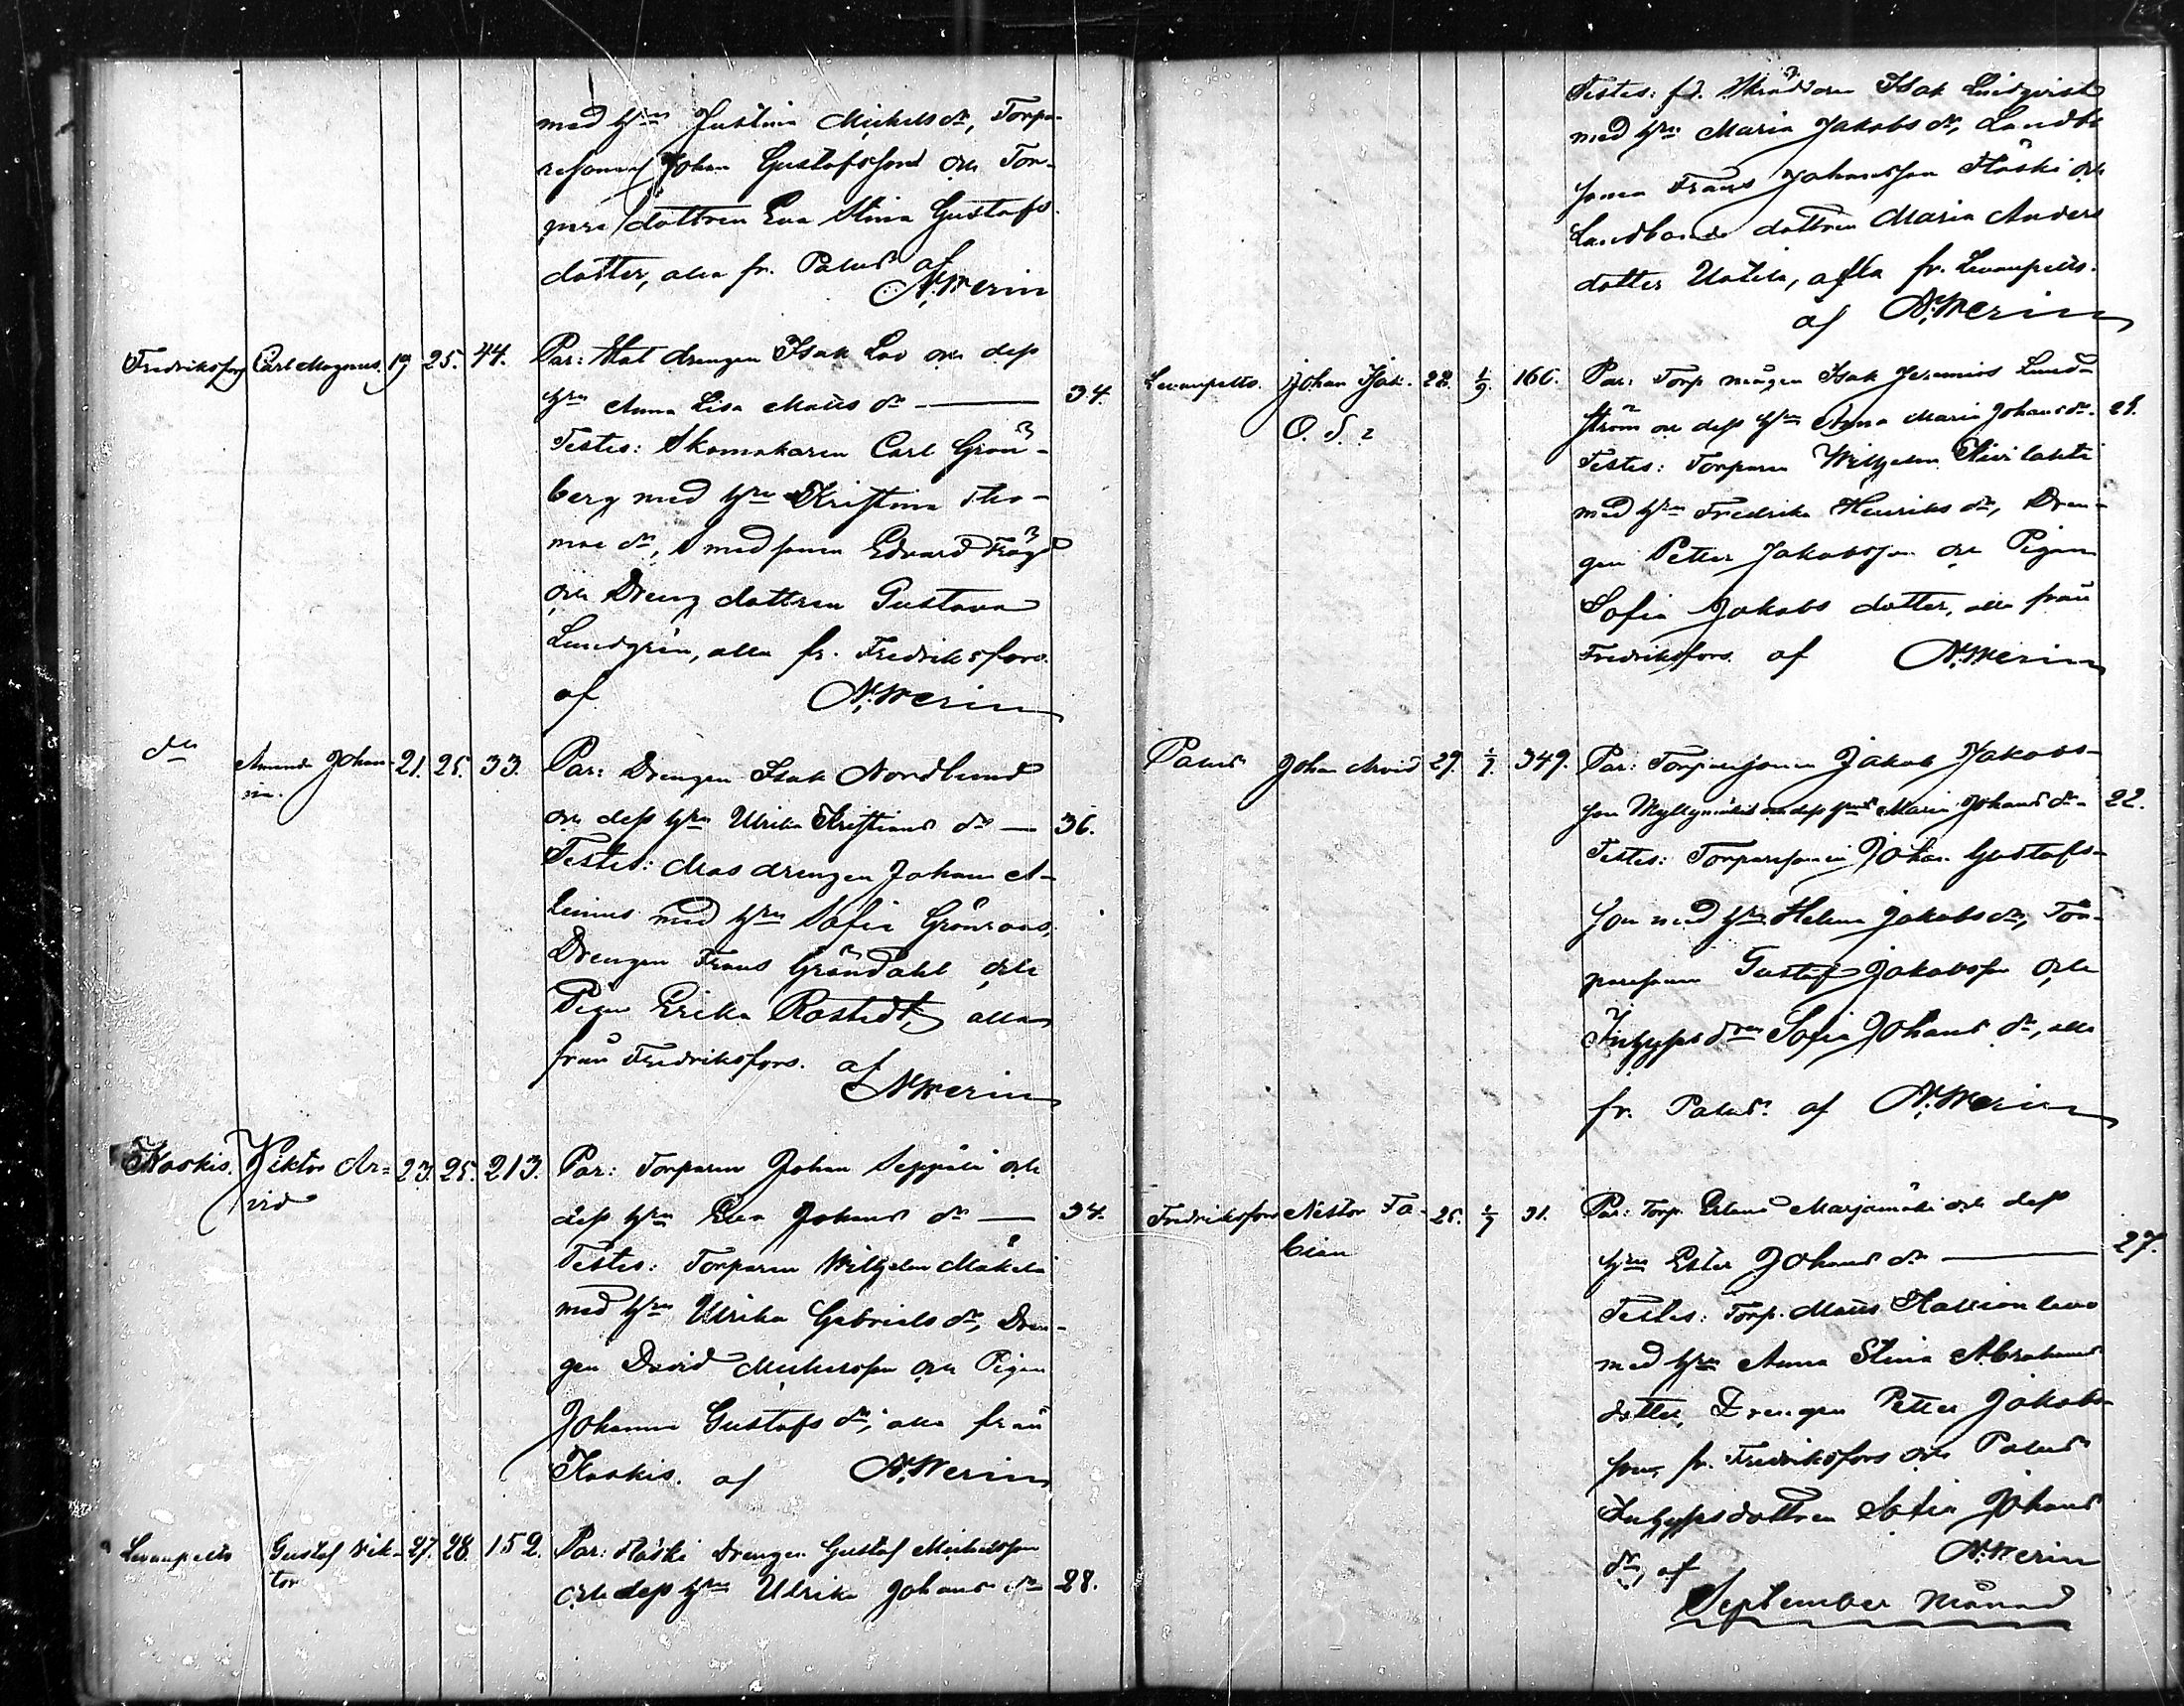 med hru Justina Mickelsdr, Torpa-
resonen Johan Gustafsson och Tor-
pare dottren Eva Stina Gustafs
dotter, alla fr. Palus af
N. Werin
Fredriksfors Carl Magnus. 19 25. 44. Par: Stat drengen Isak Loo och dess
hru Anna Lisa Matts dr — 34.
Testes: Skomakaren Carl Grön-
berg med hru Kristina Tho-
mae dr, Smedsonen Edvard Frögd
och Dreng dottren Gustava
Lundgrén, alla fr. Fredriksfors.
af N. Werin
do Amanda Johan- 21. 25. 33. Par: Drengen Isak Nordlund
na. och dess hru Ulrika Kristians dr — 36.
Testes: Mas drengen Johan A-
lenius med hru Sofia Grönroos,
Drengen Frans Gröndahl och
Pigan Erika Rostedt, alla
från Fredriksfors. af
N. Werin
Koskis. Viktor Ar- 23. 25. 213. Par: Torparen Johan Seppälä och
vid dess hru Eva Johans dr — 34.
Testes: Torparen Wilhelm Mäkelä
med hru Ulrika Gabriels dr, Dren-
gen David Mickelsson och Pigan
Johanna Gustafs dr, alla från
Koskis. af N. Werin
Levanpelto Gustaf Vik- 27. 28. 152. Par: Drengen Gustaf Mickelsson
tor och dess hru Ulrika Johans dr 28.
Testes: fd. Skräddaren Isak Lindqvist
med hru Maria Jakobs dr, Landbo
sonen Frans Johansson och
Landbonde dottren Maria Anders
dotter Uotila, alla fr. Levanpelto.
af N. Werin
Levanpelto. Johan Isak. 28. 1/9. 166. Par: Torp mågen Isak Jeremias Lund-
O. d. 2 ström och dess hru Anna Maria Johans dr. 21.
Testes: Torparen Wilhelm Kivilahti
med hru Fredrika Henriks dr, Dren-
gen Petter Jakobsson och Pigan
Sofia Jakobs dotter, alla från
Fredriksfors. af N. Werin
Palus Johan Arvid 29. 1/9. 349. Par: Torparesonen Jakob Jakobs-
son Myllymäki och dess hru Maria Johans dr — 22.
Testes: Torparesonen Johan Gustafs-
son med hru Helena Jakobs dr, Tor-
paresonen Gustaf Jakobsson och
Inhyses dren Sofia Johans dr, alla
fr. Palus. af N. Werin
Fredriksfors Nestor Fa- 25. 1/9 31. Par: Torp. Marjamäki och dess
bian hru Ester Johans dr — 27.
Testes: Torp. Matts
med hru Anna Stina Abrahams
dotter, Drengen Petter Jakobs-
son, fr. Fredriksfors och Palus
Inhyses dottren Sofia Johans
dr, af N. Werin
September Månad